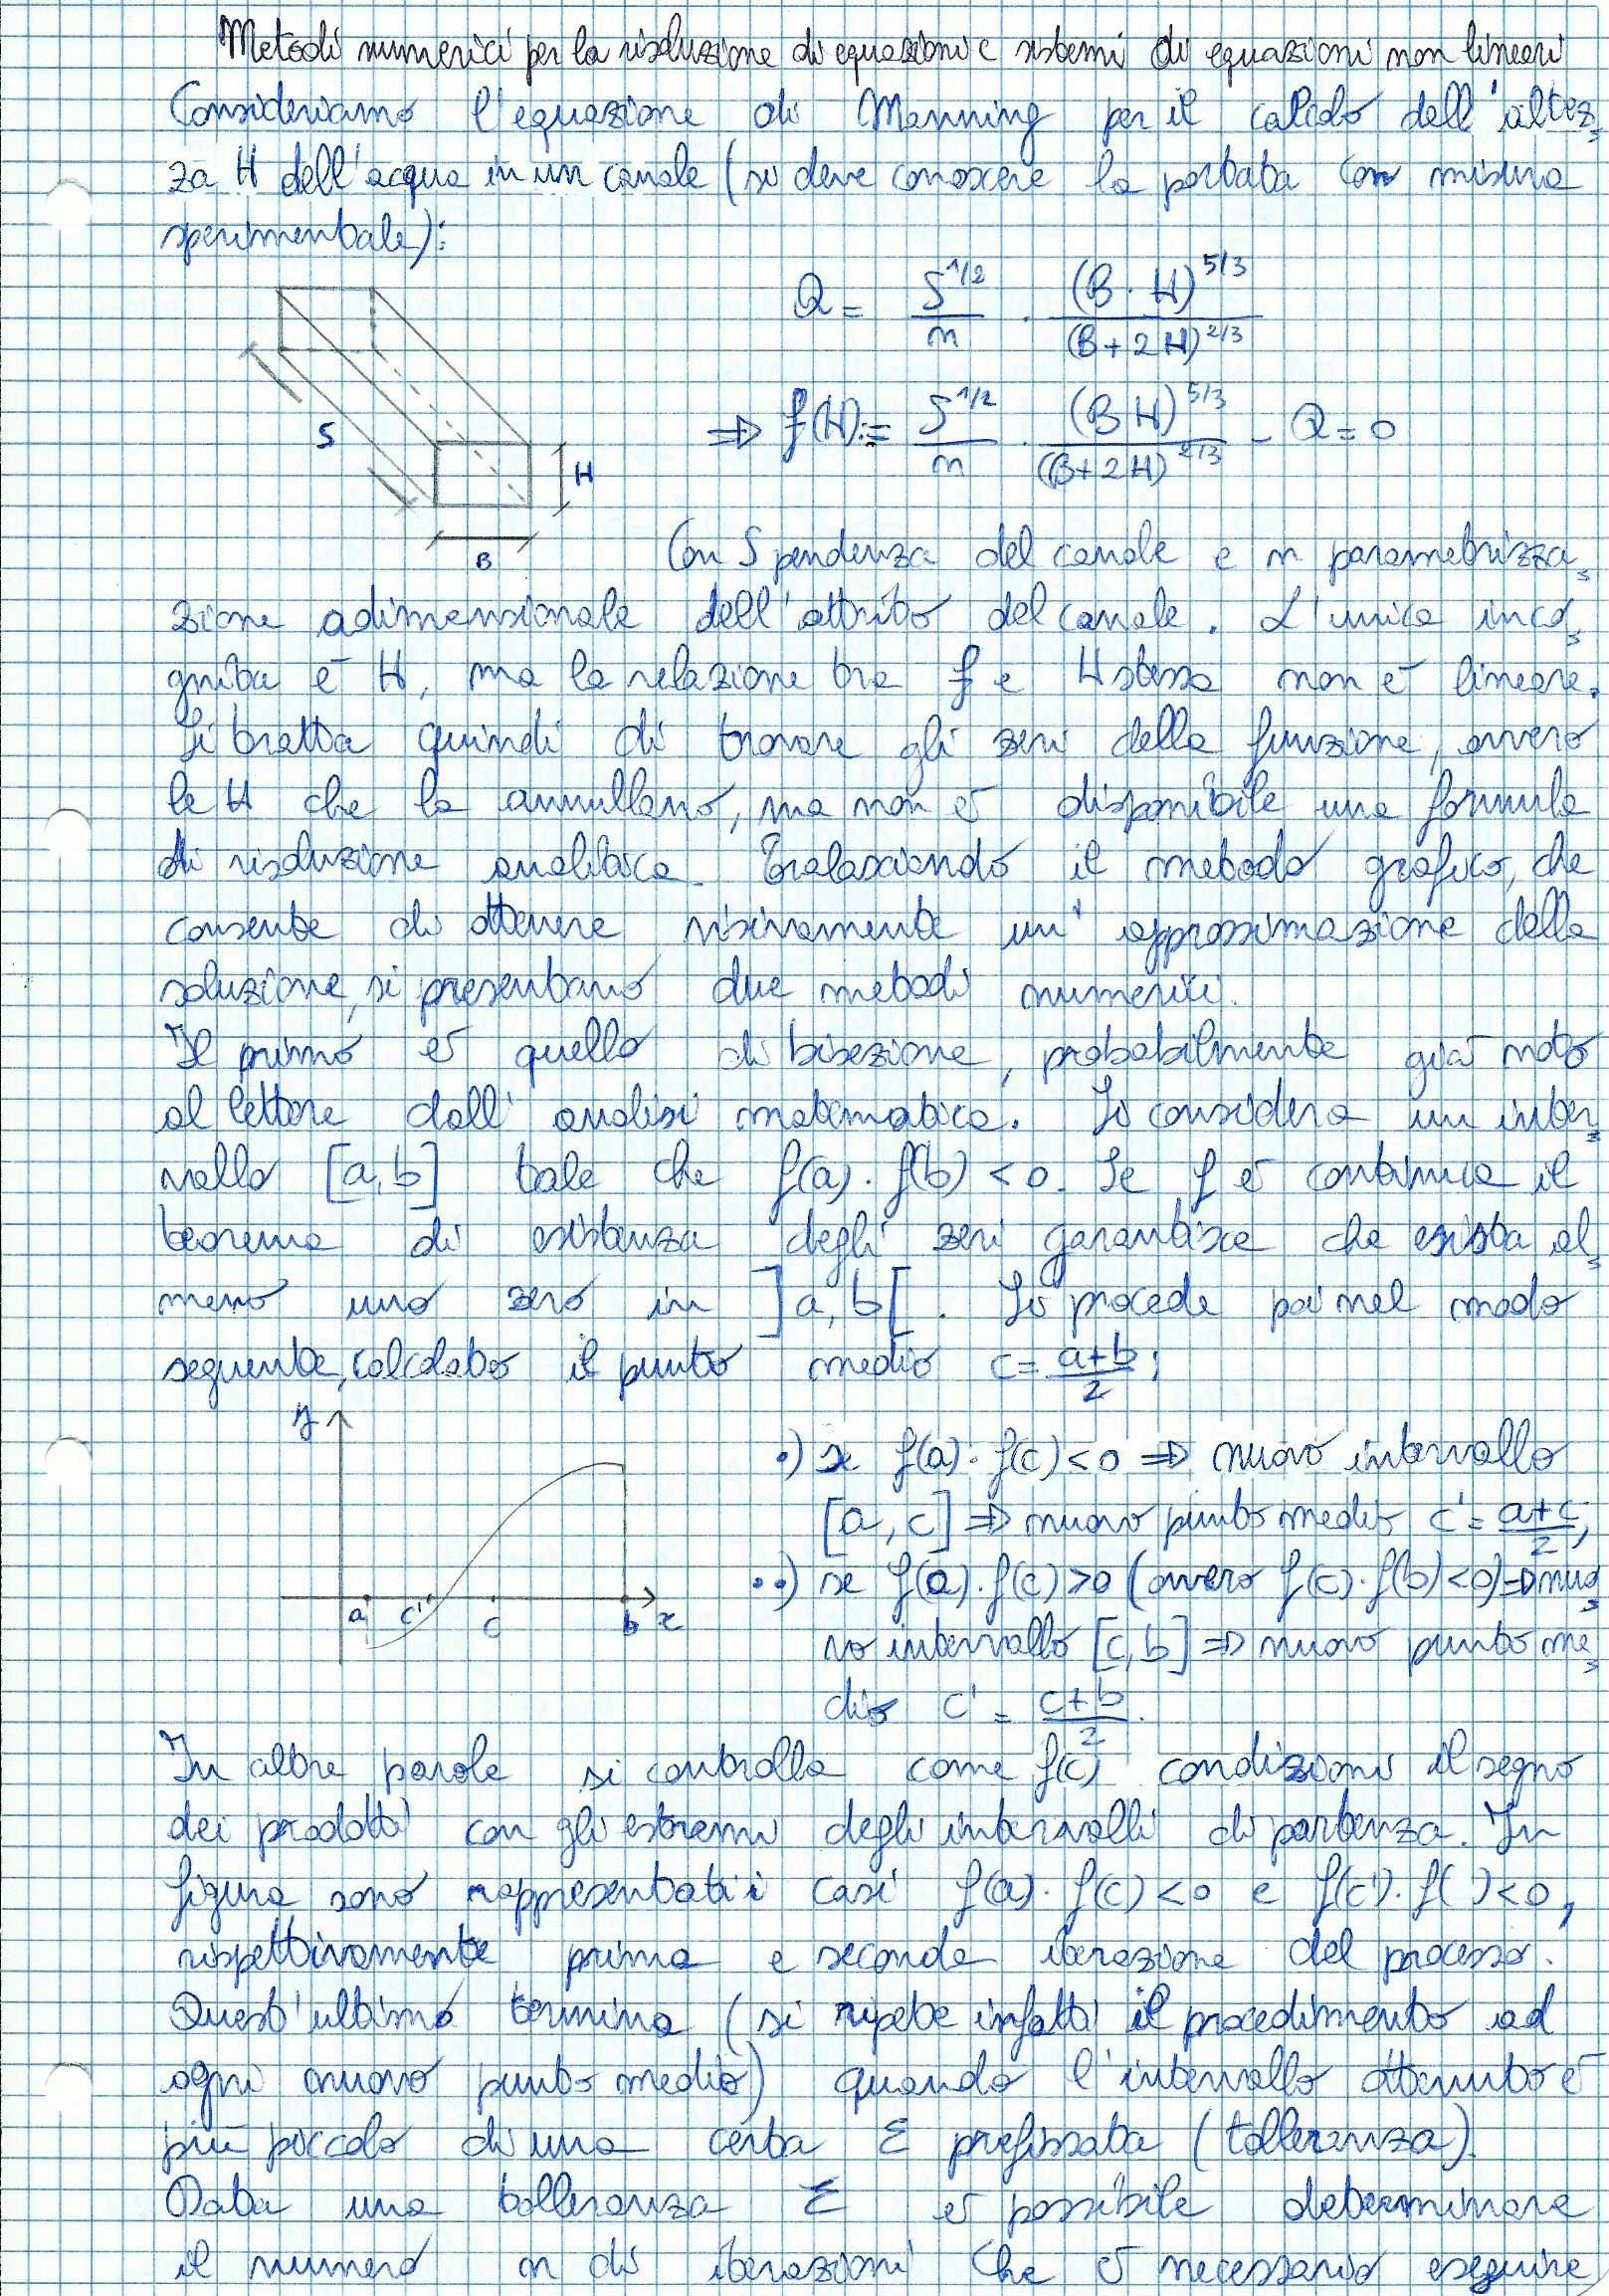 Metodi numerici per la risoluzione di equazioni e sistemi di equazioni non lineari
Consideriamo l'equazione di Manning per il calcolo dell'altez
za H dell'acqua in un canale (si deve conoscere la portata con misura
sperimentale):
Q = S^1/2 / n · (B · H)^5/3 / (B + 2H)^2/3
⇒ f(H) := S^1/2 / n · (B H)^5/3 / (B + 2H)^2/3 - Q = 0
S
H
B
Con S pendenza del canale e n parametrizza
zione adimensionale dell'attrito del canale. L'unica inco
gnita è H, ma la relazione tra f e H stessa non è lineare.
Si tratta quindi di trovare gli zeri della funzione, ovvero
le H che la annullano, ma non è disponibile una formula
di risoluzione analitica. Tralasciando il metodo grafico, che
consente di ottenere visivamente un'approssimazione della
soluzione, si presentano due metodi numerici.
Il primo è quello di bisezione, probabilmente già noto
al lettore dall'analisi matematica. Si considera un inter
vallo [a,b] tale che f(a) · f(b) < 0. Se f è continua il
teorema di esistenza degli zeri garantisce che esista al
meno uno zero in ]a, b[. Si procede poi nel modo
seguente, calcolato il punto medio c = a+b / 2 ;
y
a c' c b x
·) se f(a) · f(c) < 0 ⇒ nuovo intervallo
[a, c] ⇒ nuovo punto medio c' = a+c / 2 ;
··) se f(a) · f(c) > 0 (ovvero f(c) · f(b) < 0) ⇒ nuo
vo intervallo [c, b] ⇒ nuovo punto me
dio c' = c+b / 2 .
In altre parole si controlla come f(c) condizioni il segno
dei prodotti con gli estremi degli intervalli di partenza. In
figura sono rappresentati i casi f(a) · f(c) < 0 e f(c') · f( ) < 0,
rispettivamente prima e seconda iterazione del processo.
Quest'ultimo termina (si ripete infatti il procedimento ad
ogni nuovo punto medio) quando l'intervallo ottenuto è
più piccolo di una certa ε prefissata (tolleranza).
Data una tolleranza ε è possibile determinare
il numero n di iterazioni che è necessario eseguire